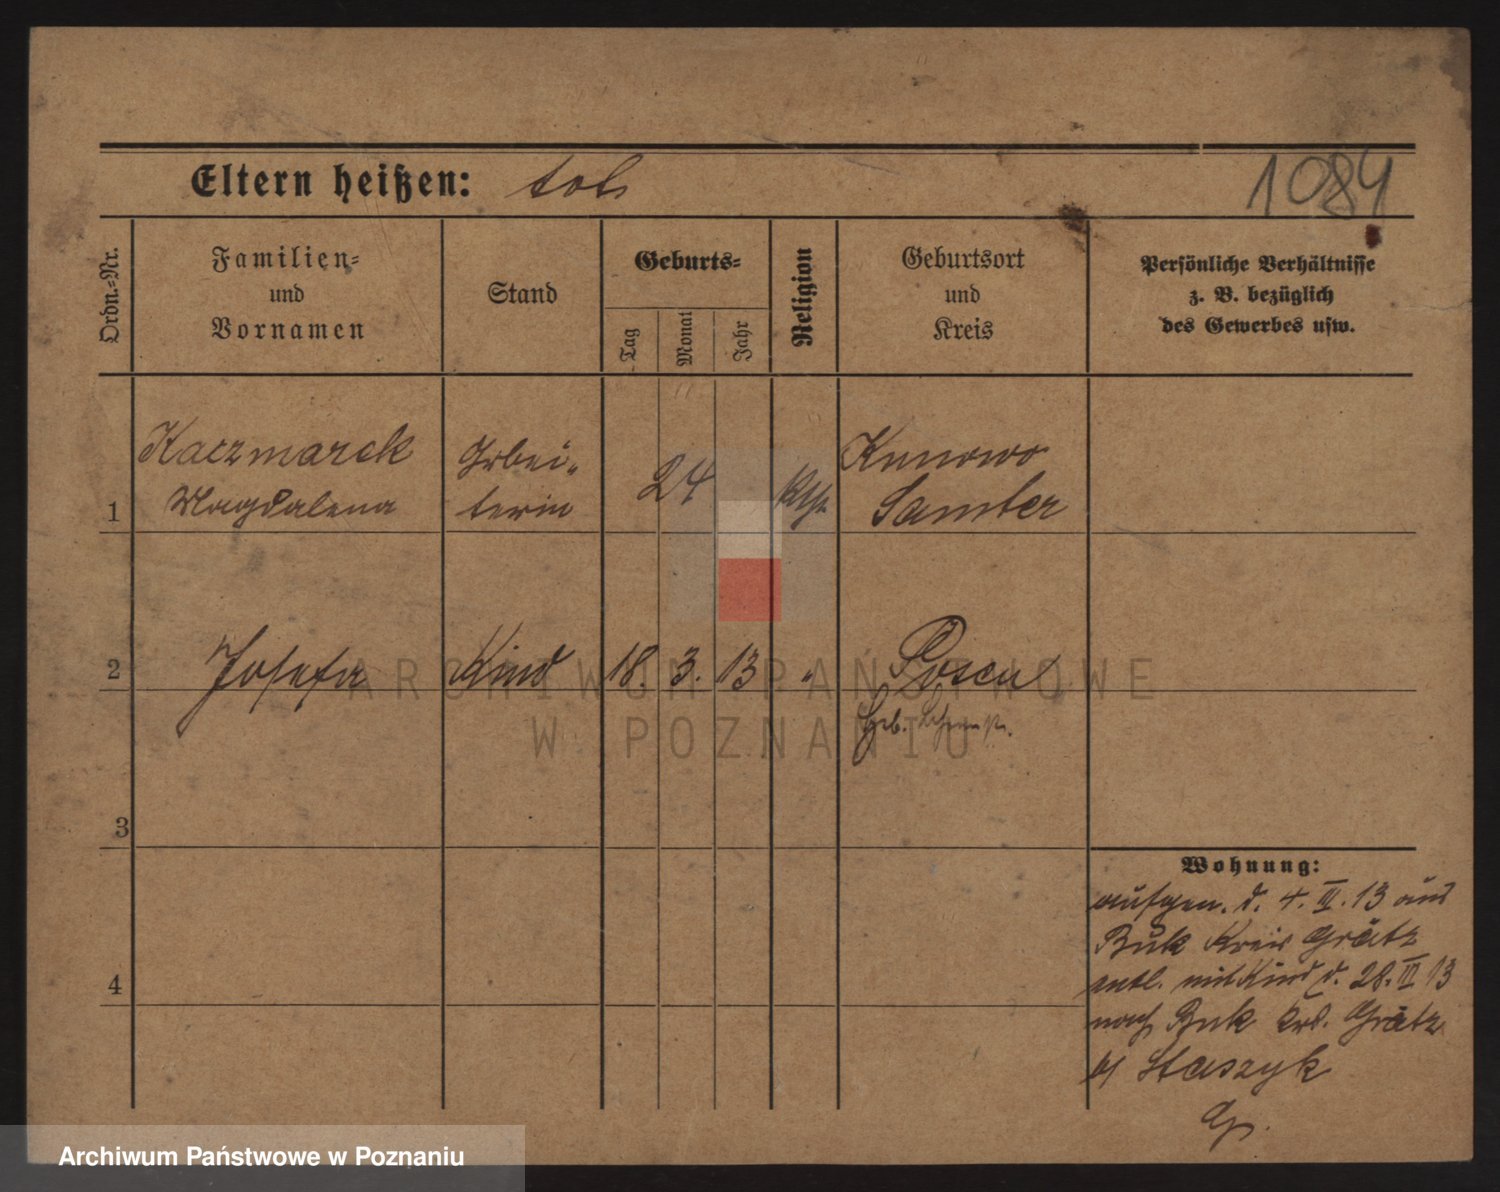 Eltern heißen: tot
1084
Ordn.-Nr.
Familien-
und
Vornamen
Stand
Geburts-
Tag
Monat
Jahr
Religion
Geburtsort
und
Kreis
Persönliche Verhältnisse
z. B. bezüglich
des Gewerbes usw.
1
Kaczmarek
Magdalena
Arbei-
terin
24
Kth.
Kunowo
Samter
2
Josefa
Kind
18. 3. 13
"
Posen
Geb.
3
4
Wohnung:
aufgen. d. 4. III. 13 aus
Buk Kreis Grätz
entl. mit Kind d. 28. III 13
nach Buk Krs. Grätz
b/ Staszyk
G.
ARCHIWUM PAŃSTWOWE
W POZNANIU
Archiwum Państwowe w Poznaniu